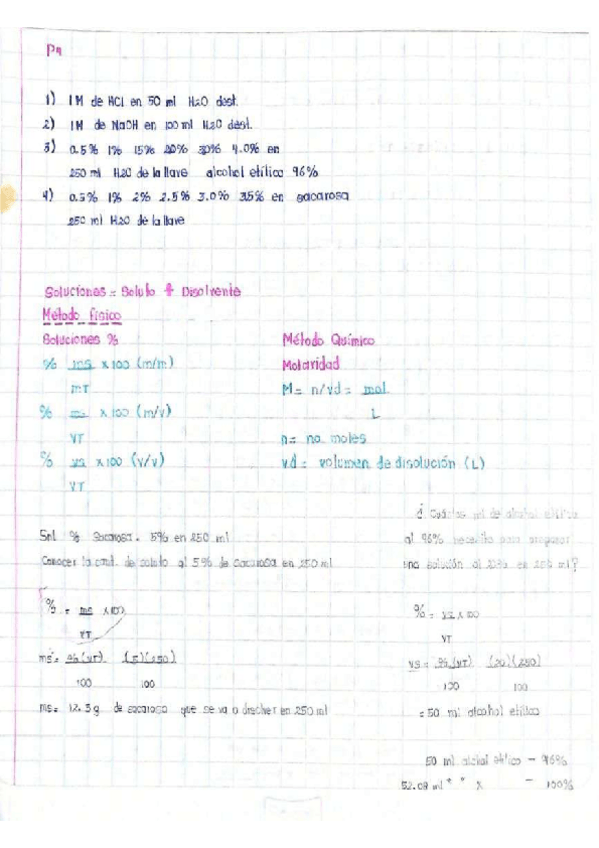 Pa
1) 1M de HCl en 50 ml H2O dest.
2) 1M de NaOH en 100 ml H2O dest.
3) 0.5% 1% 15% 20% 30% 4.0% en
250 ml H2O de la llave alcohol etílico 96%
4) 0.5% 1% 2% 2.5% 3.0% 3.5% en sacarosa
250 ml H2O de la llave
Soluciones = Soluto + Disolvente
Método físico
Soluciones %
% ms x 100 (m/m)
mT
% ms x 100 (m/v)
VT
% vs x 100 (v/v)
VT
Método Químico
Molaridad
M = n/vd = mol
L
n = no. moles
v.d = volumen de disolución (L)
Snl % Sacarosa. 5% en 250 ml
Conocer la cant. de soluto al 5% de sacarosa en 250 ml
% = ms x 100
VT
ms = %(VT) (5)(250)
100 100
ms = 12.5 g de sacarosa que se va a disolver en 250 ml
¿ Cuántos ml de alcohol etílico
al 96% necesito para preparar
una solución al 20% en 250 ml?
% = vs x 100
VT
vs = %(VT) (20)(250)
100 100
= 50 ml alcohol etílico
50 ml alcohol etílico - 96%
52.08 ml " " x - 100%